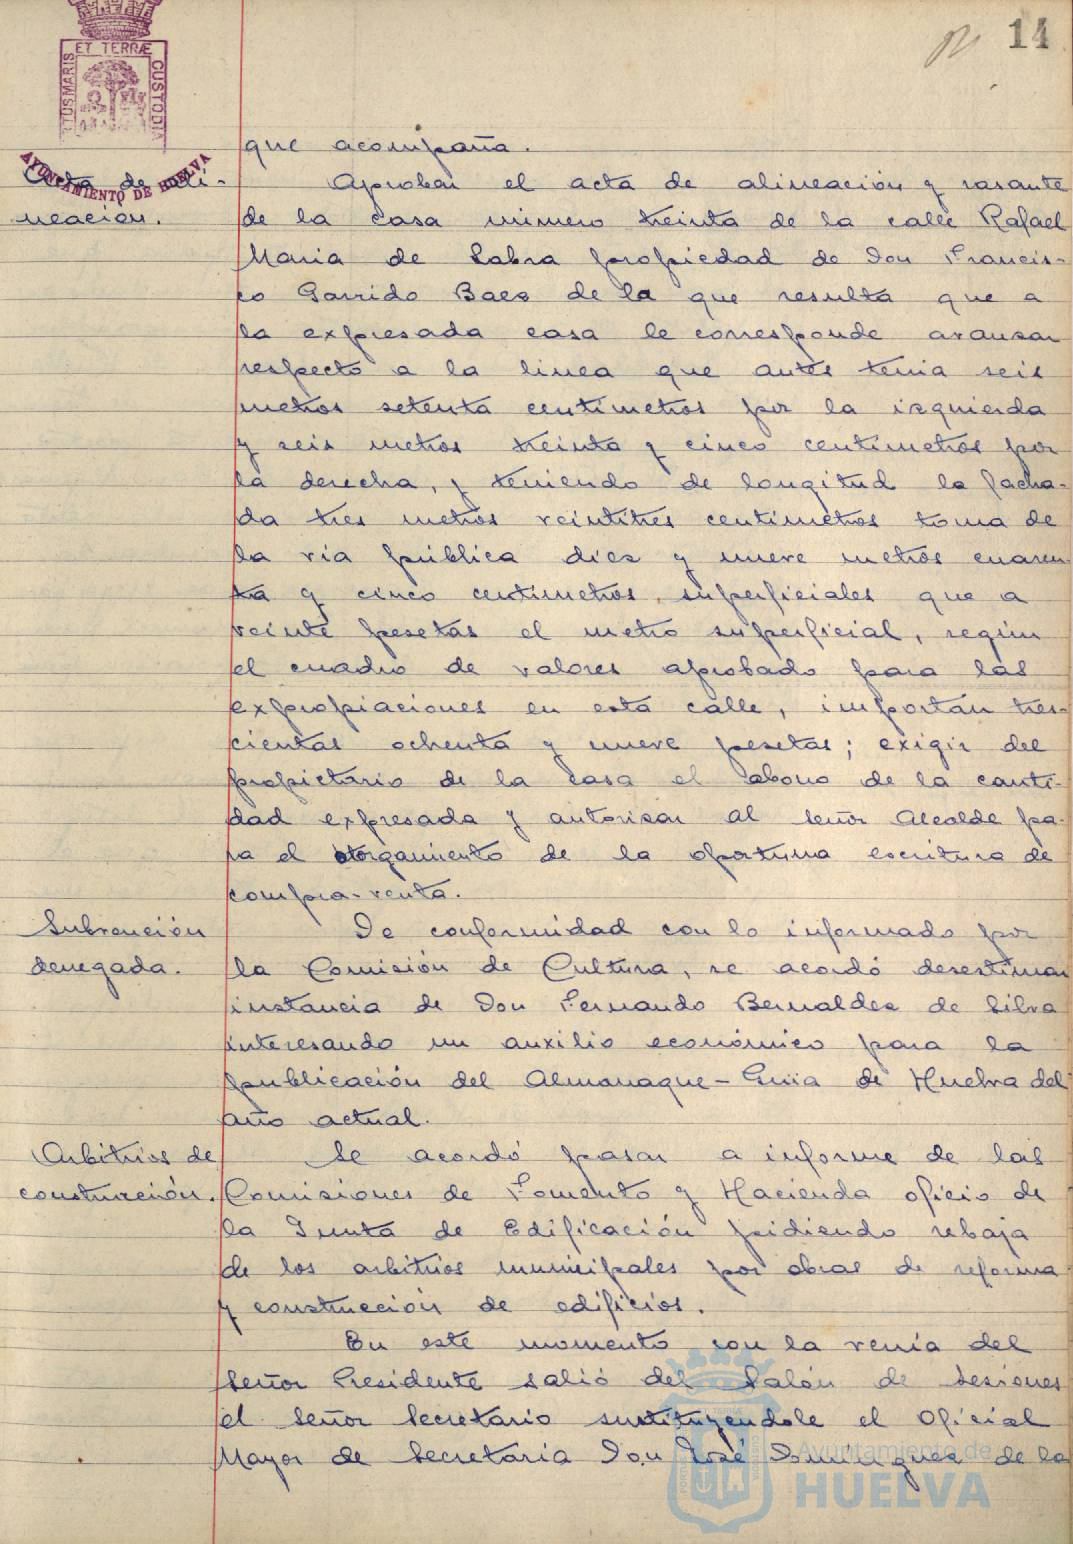 14
ET TERRÆ
TUS MARIS
CUSTODIA
AYUNTAMIENTO DE HUELVA
que acompaña.
Acta de ali-
neacion.
Aprobar el acta de alineación y rasante
de la casa número treinta de la calle Rafael
Maria de Labra propiedad de Don Francis-
co Garrido Baes de la que resulta que a
la expresada casa le corresponde avansar
respecto a la linea que antes tenia seis
metros setenta centimetros por la izquierda
y seis metros treinta y cinco centimetros por
la derecha, y teniendo de longitud la facha-
da tres metros veintitres centimetros toma de
la via pública dies y nueve metros cuaren-
ta y cinco centimetros superficiales que a
veinte pesetas el metro superficial, según
el cuadro de valores aprobado para las
expropiaciones en esta calle, importan tres-
cientas ochenta y nueve pesetas; exigir del
propietario de la casa el abono de la canti-
dad expresada y autorisar al señor Alcalde pa-
ra el otorgamiento de la oportuna escritura de
compra-venta.
Subvención
denegada.
De conformidad con lo informado por
la Comisión de Cultura, se acordó desestimar
instancia de Don Fernando Bernaldes de Silva
interesando un auxilio económico para la
publicación del Almanaque-Guia de Huelva del
año actual.
Arbitrios de
construcción.
Se acordó pasar a informe de las
Comisiones de Fomento y Hacienda oficio de
la Junta de Edificación pidiendo rebaja
de los arbitrios municipales por obras de reforma
y construcción de edificios.
En este momento con la venia del
señor Presidente salió del Salón de sesiones
el señor Secretario sustituyendole el Oficial
Mayor de Secretaria Don José Domingues de la
Ayuntamiento de
HUELVA